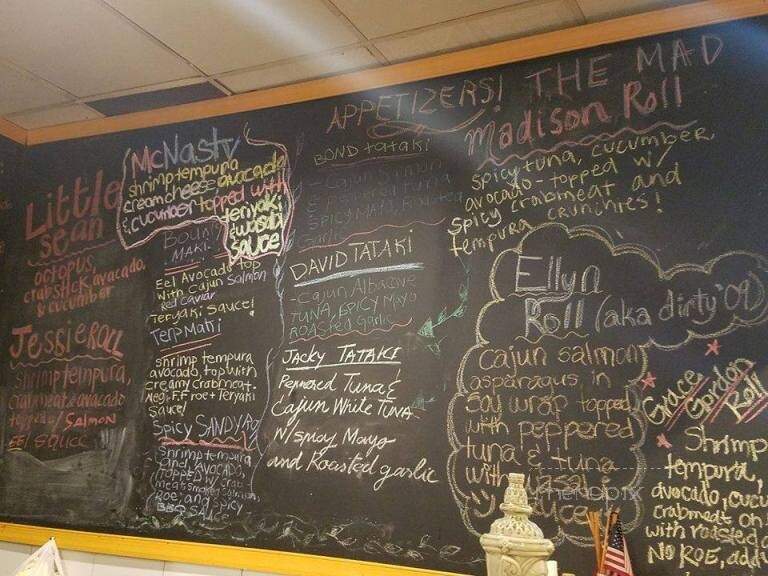 Little
Sean
octopus,
crab stick, avocado,
& cucumber
Jessie Roll
Shrimp tempura,
crabmeat & avocado
topped w/ Salmon
EEL SAUCE
McNasty
shrimp tempura
cream cheese avocado
& cucumber topped with
teriyaki
& wasabi
sauce
MAKI
Eel Avocado top
with Cajun Salmon
Red Caviar
Teryaki Sauce!
Terp Maki
shrimp tempura
avocado, top with
creamy crabmeat.
roe + Teryaki
Sauce!
Spicy SANDY
Shrimp tempura
and Avocado
TOPPED w/ crab
meat, smoking salmon,
Roe, and spicy
BBQ SAUCE
APPETIZERS!
BOND tataki
- Cajun Salmon
& Peppered Tuna
SPICY MAYO, Roasted
Garlic
DAVID TATAKI
- Cajun Albacore
TUNA, SPICY Mayo
ROASTED Garlic
Jacky TATAKI
Peppered Tuna &
Cajun White TUNA
w/ spicy Mayo
and Roasted garlic
THE MAD
Madison Roll
spicy tuna, cucumber,
avocado - topped w/
Spicy crabmeat and
tempura crunchies!
Ellyn
Roll (aka dirty '09)
Cajun salmon
asparagus in
soy wrap topped
with peppered
tuna & tuna
with wasabi
sauce
Grace
Gordon
Roll
Shrimp
tempura,
avocado, cucu
crabmeat on
with roasted
NO ROE, add